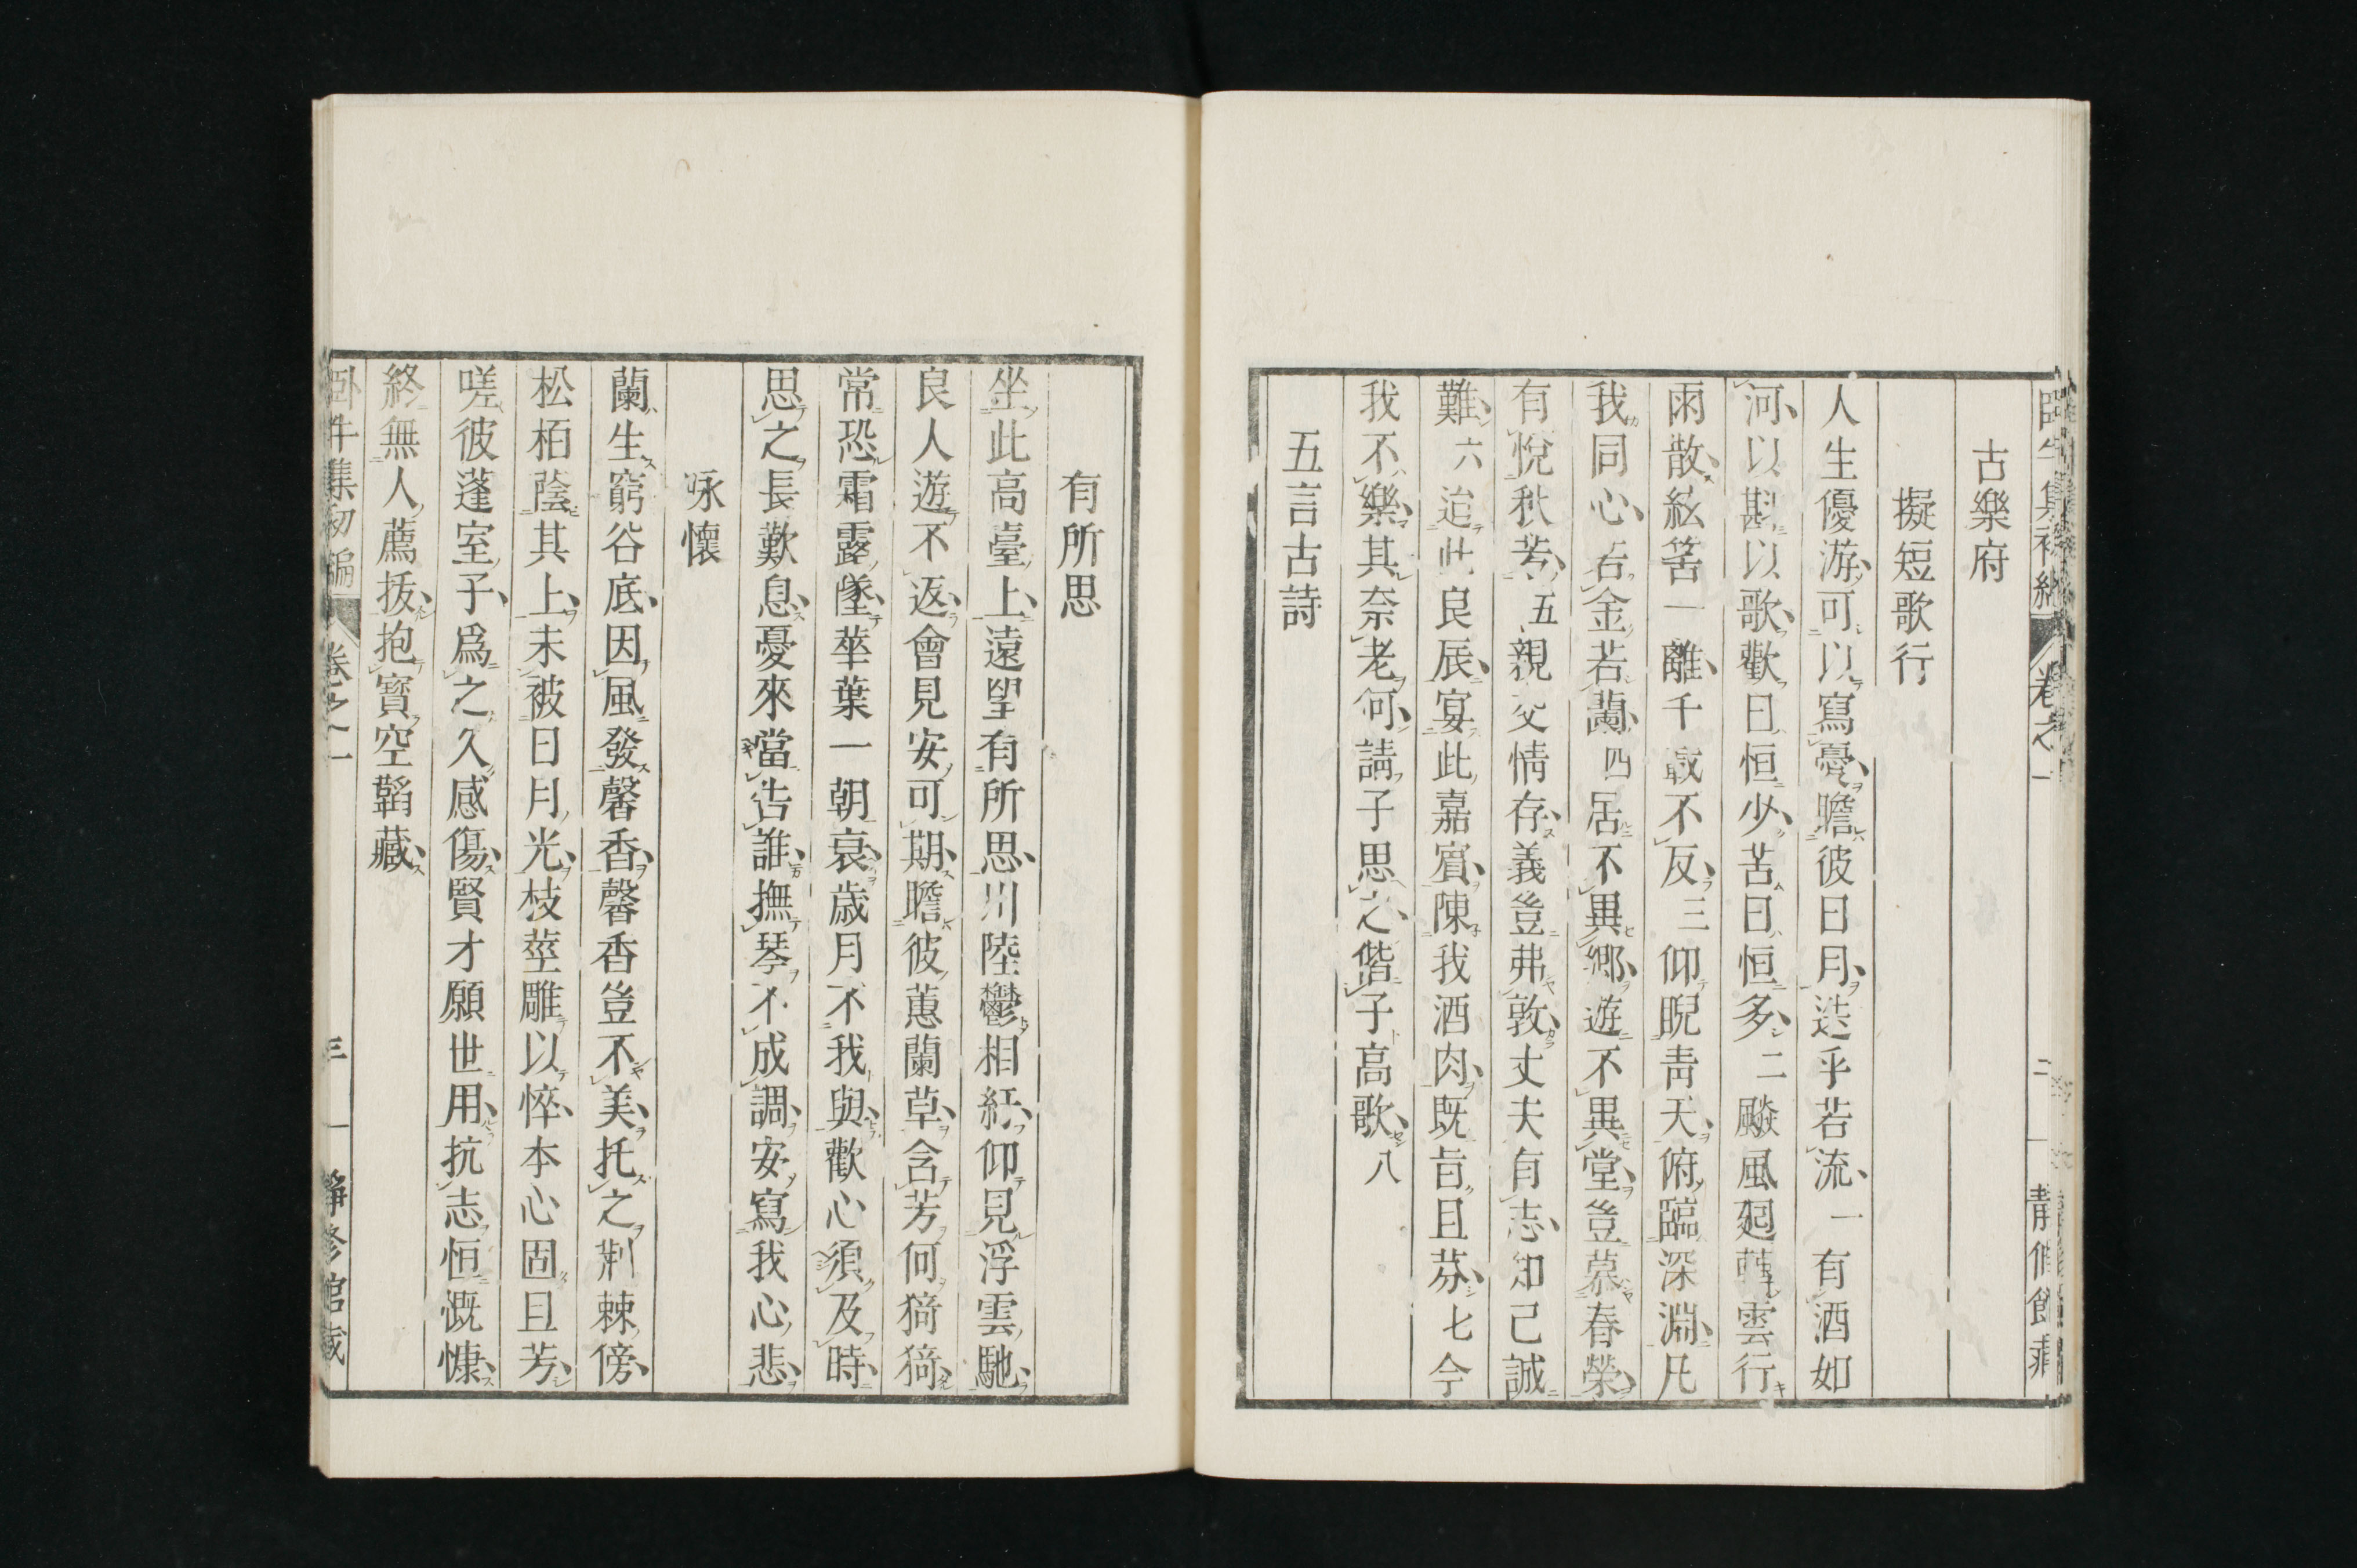 古樂府
擬短歌行
人生優游可以寫憂瞻彼日月逝乎若流一有酒如
河以斟以歌歡日恒少苦日恒多二飈風廻轉雲行
雨散絃筈一離千載不反三仰睨靑天俯臨深淵凡
我同心若金若蘭四居不異郷遊不異堂豈慕春榮
有悅秋芳五親交情存義豈弗敦丈夫有志知己誠
難六迨此良辰宴此嘉賓陳我酒肉既旨且芬七今
我不樂其奈老何請子思之偕子高歌八
五言古詩
有所思
坐此高臺上遠望有所思川陸鬱相紆仰見浮雲馳
良人遊不返會見安可期瞻彼蕙蘭草含芳何猗猗
常恐霜露墜華葉一朝衰歳月不我與歡心須及時
思之長歎息憂來當告誰撫琴不成調安寫我心悲
咏懷
蘭生窮谷底因風發馨香馨香豈不美托之荊棘傍
松栢蔭其上未被日月光枝莖雕以悴本心固且芳
嗟彼蓬室子爲之久感傷賢才願世用抗志恒慨慷
終無人薦抜抱寶空韜藏
臥牛集初編 卷之一 三 靜修館藏